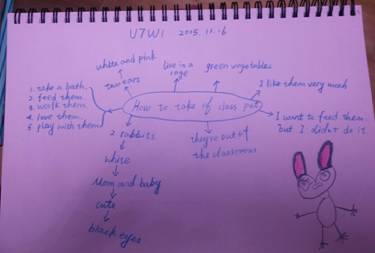 U7W1 2015.11.16
white and pink
two ears
live in a
cage
green vegetables
I like them very much
1. take a bath.
2. feed them.
3. walk them.
4. love them.
5. play with them!
How to take of class pet
I want to feed them
but I didn't do it.
2 rabbits
they're out of
the classroom
white
Mom and baby
cute
black eyes